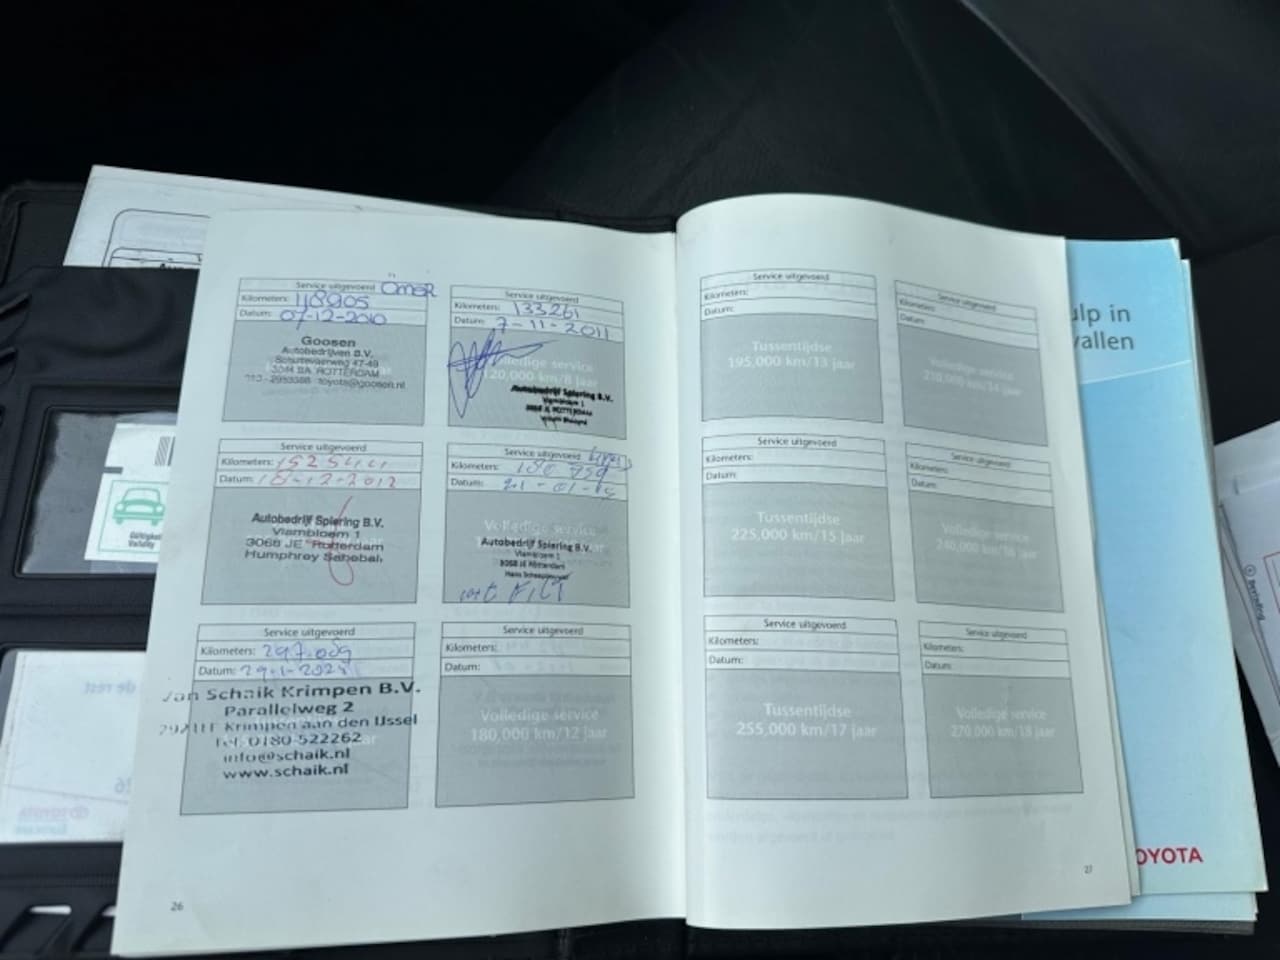 Service uitgevoerd Ömer
Kilometers: 118905
Datum: 07-12-2010
Goosen
Autobedrijven B.V.
3044 BA ROTTERDAM
toyota@goosen.nl
Service uitgevoerd
Kilometers: 133261
Datum: 7-11-2011
Volledige service
120,000 km/8 jaar
Autobedrijf Spiering B.V.
Vlambloem 1
3068 JE ROTTERDAM
Service uitgevoerd
Kilometers: 152544
Datum: 18-12-2012
Autobedrijf Spiering B.V.
Vlambloem 1
3068 JE Rotterdam
Humphrey Sahebali
Service uitgevoerd
Kilometers: 180 959
Datum: 21-01-15
Volledige service
Autobedrijf Spiering B.V.
Vlambloem 1
3068 JE Rotterdam
Service uitgevoerd
Kilometers: 297.009
Datum: 29-1-2024
Van Schaik Krimpen B.V.
Parallelweg 2
Krimpen aan den IJssel
Tel. 0180-522262
info@schaik.nl
www.schaik.nl
Service uitgevoerd
Kilometers:
Datum:
Volledige service
180,000 km/12 jaar
26
Service uitgevoerd
Kilometers:
Datum:
Tussentijdse
195,000 km/13 jaar
Service uitgevoerd
Kilometers:
Datum:
Volledige service
210,000 km/14 jaar
Service uitgevoerd
Kilometers:
Datum:
Tussentijdse
225,000 km/15 jaar
Service uitgevoerd
Kilometers:
Datum:
Volledige service
240,000 km/16 jaar
Service uitgevoerd
Kilometers:
Datum:
Tussentijdse
255,000 km/17 jaar
Service uitgevoerd
Kilometers:
Datum:
Volledige service
270,000 km/18 jaar
27
ulp in
vallen
OYOTA